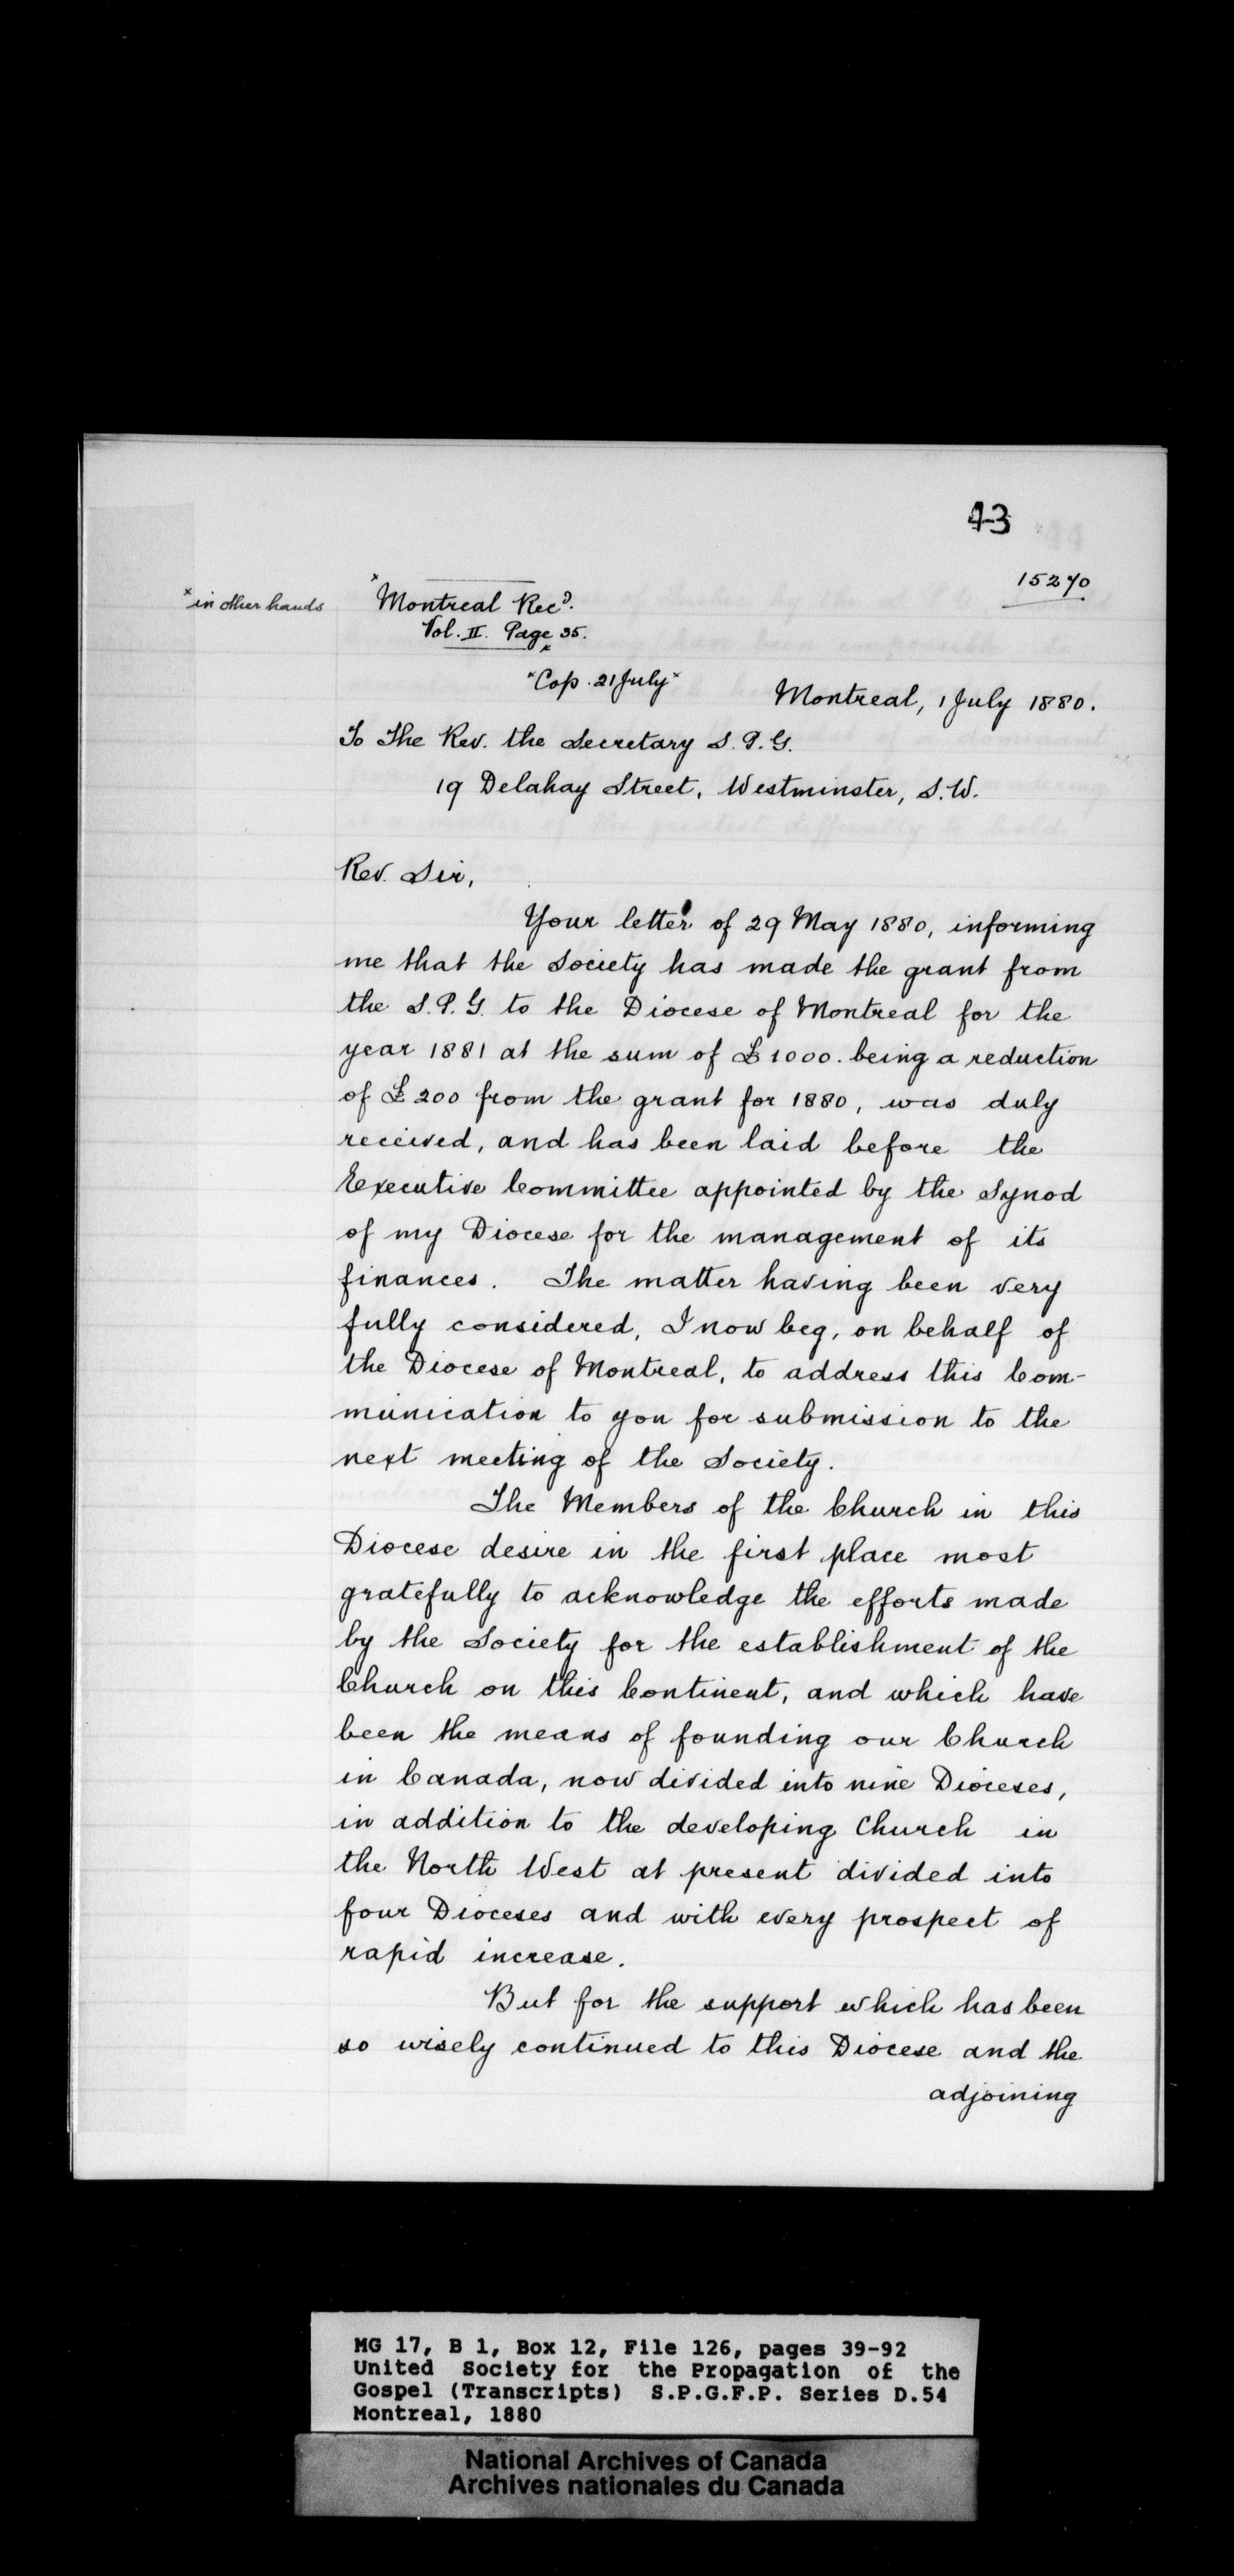 43
15270
x in other hands
x Montreal Recd.
Vol. II. Page 35. x
x Cop. 21 July x
Montreal, 1 July 1880.
To The Rev. the Secretary S.P.G.
19 Delahay Street, Westminster, S.W.
Rev. Sir,
Your letter of 29 May 1880, informing
me that the Society has made the grant from
the S.P.G. to the Diocese of Montreal for the
year 1881 at the sum of £1000. being a reduction
of £200 from the grant for 1880, was duly
received, and has been laid before the
Executive Committee appointed by the Synod
of my Diocese for the management of its
finances. The matter having been very
fully considered, I now beg, on behalf of
the Diocese of Montreal, to address this Com-
munication to you for submission to the
next meeting of the Society.
The Members of the Church in this
Diocese desire in the first place most
gratefully to acknowledge the efforts made
by the Society for the establishment of the
Church on this Continent, and which have
been the means of founding our Church
in Canada, now divided into nine Dioceses,
in addition to the developing Church in
the North West at present divided into
four Dioceses and with every prospect of
rapid increase.
But for the support which has been
so wisely continued to this Diocese and the
adjoining
MG 17, B 1, Box 12, File 126, pages 39-92
United Society for the Propagation of the
Gospel (Transcripts) S.P.G.F.P. Series D.54
Montreal, 1880
National Archives of Canada
Archives nationales du Canada